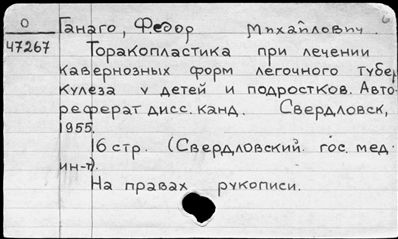 О Ганаго, Федор Михайлович.
47267 Торакопластика при лечении
кавернозных форм легочного тубер
кулеза у детей и подростков. Авто-
реферат дисс. канд. Свердловск,
1955.
16 стр. (Свердловский гос. мед.
ин-т).
На правах рукописи.